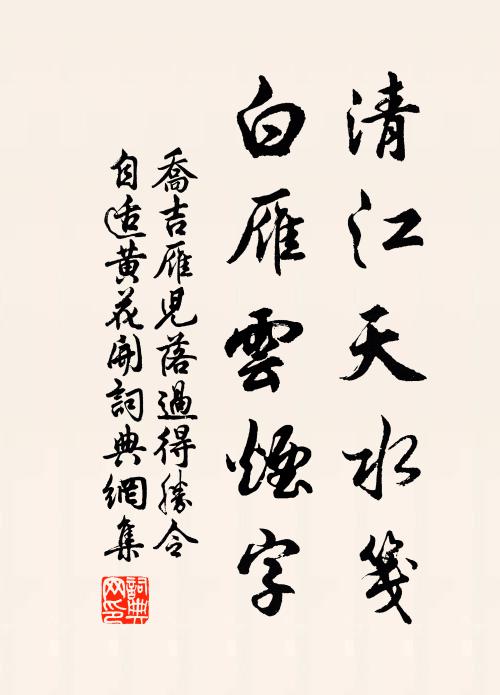 清江天水箋
白雁雲煙字
喬吉雁兒落過得勝令
自适黄花開詞典網集
詞典
网印